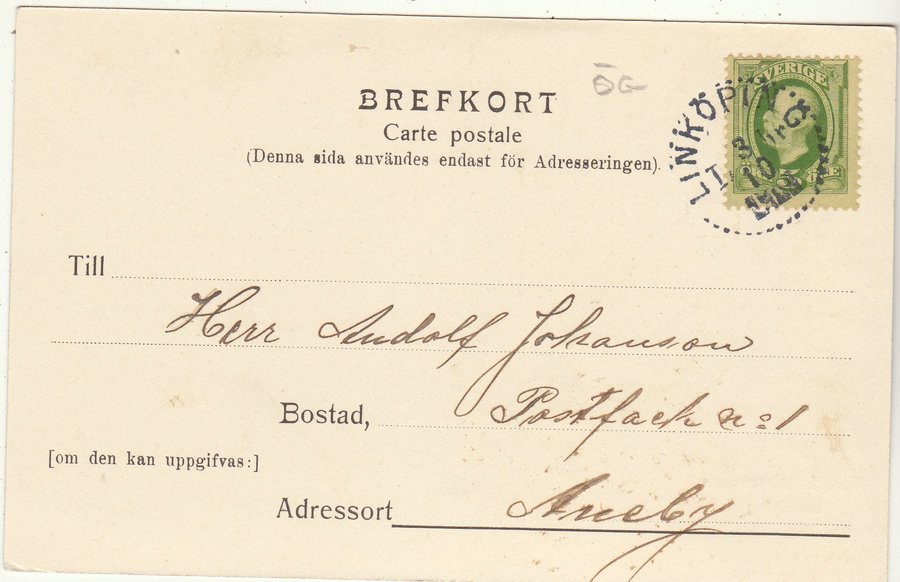 ÖG
BREFKORT
Carte postale
(Denna sida användes endast för Adresseringen).
SVERIGE
LINKÖPING
10
Till
Herr Rudolf Johanson
Bostad, Postfack no: 1
[om den kan uppgifvas:]
Adressort Aneby